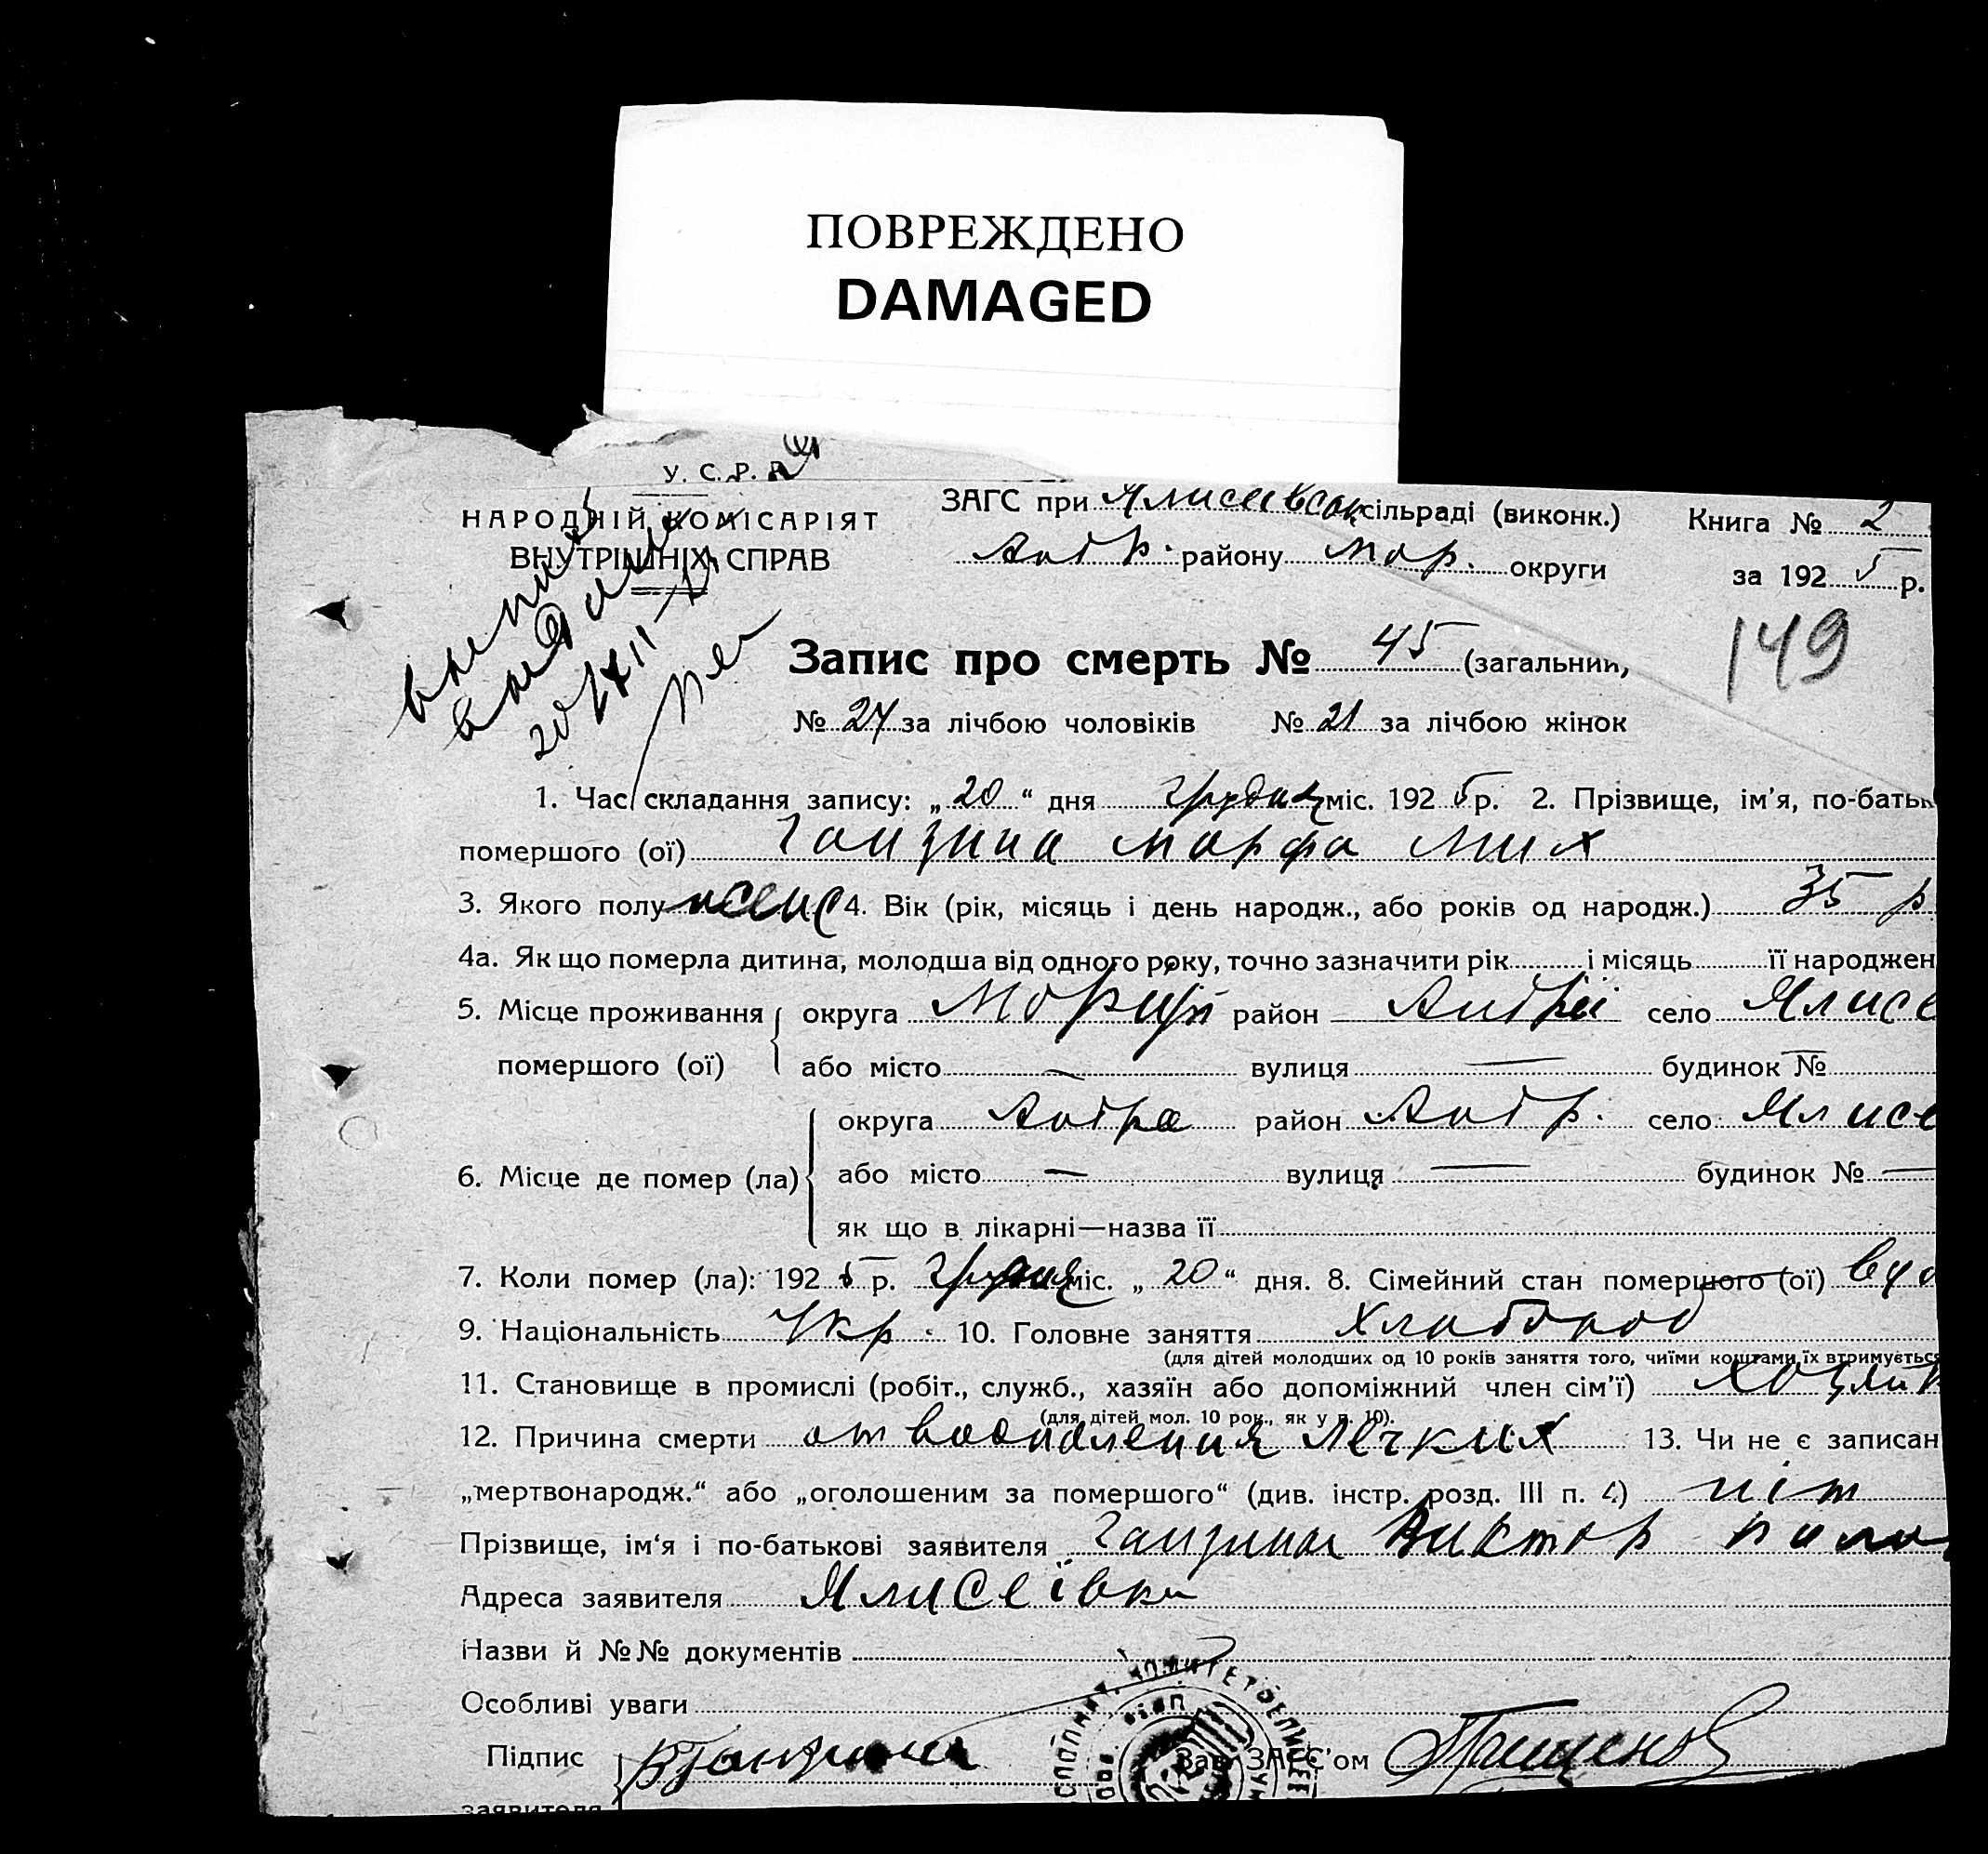 ПОВРЕЖДЕНО
DAMAGED
У. С. Р. Р.
НАРОДНІЙ КОМІСАРІЯТ
ВНУТРІШНІХ СПРАВ
ЗАГС при сільраді (виконк.) Книга № 2
району Мар. округи за 1925 р.
149
Запис про смерть № 45 (загальний,
№ 24 за лічбою чоловіків № 21 за лічбою жінок
1. Час складання запису: „20“ дня грудня міс. 1925 р. 2. Прізвище, ім’я, по-батьк
помершого (ої) Ганзина Марфа Мих
3. Якого полу женс 4. Вік (рік, місяць і день народж., або років од народж.) 35 р
4а. Як що померла дитина, молодша від одного року, точно зазначити рік і місяць її народжен
5. Місце проживання округа район Андрії село Ялисе
помершого (ої) або місто — вулиця — будинок № —
округа район село Ялисе
6. Місце де помер (ла) або місто — вулиця — будинок № —
як що в лікарні—назва її
7. Коли помер (ла): 1925 р. грудня міс. „20“ дня. 8. Сімейний стан помершого (ої)
9. Національність Укр. 10. Головне заняття Хлебороб
(для дітей молодших од 10 років заняття того, чиїми коштами їх втримується
11. Становище в промислі (робіт., служб., хазяїн або допоміжний член сім’ї)
(для дітей мол. 10 рок., як у п. 10).
12. Причина смерти от воспаления Легких 13. Чи не є записан
„мертвонародж.“ або „оголошеним за помершого“ (див. інстр. розд. III п. 4) ніт
Прізвище, ім‘я і по-батькові заявителя Ганзина Виктор
Адреса заявителя Ялисеївка
Назви й №№ документів
Особливі уваги
Підпис ВГанзина Зав. ЗАГС’ом
заявителя